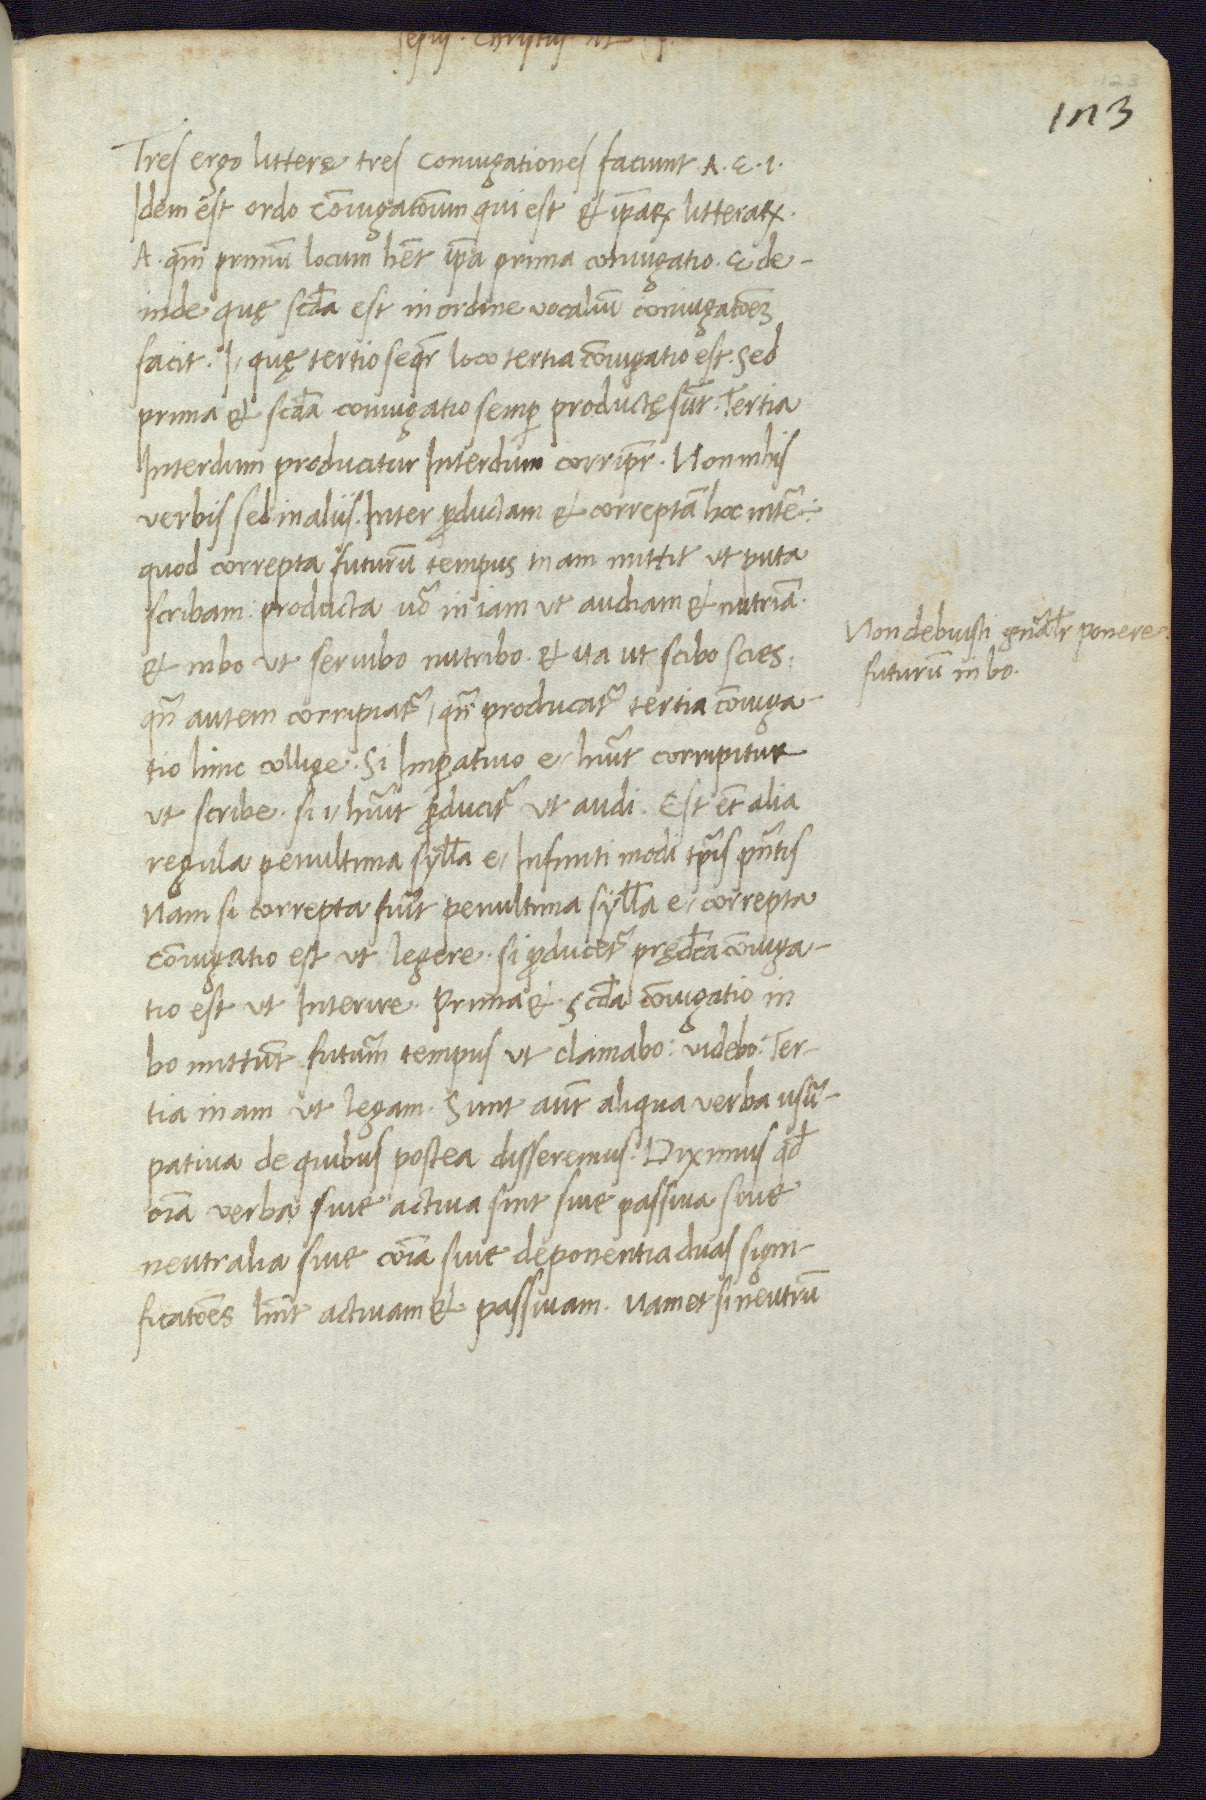 123
Tres ergo litterę tres coniugationes faciunt A. E. I.
Idem est ordo cōiugatōum qui est & ip̄aꝝ litteraꝝ.
A. qm̄ primū locum hēt ip̄a prima coniugatio. E de-
inde quę scd̄a est in ordine vocaliū coniugatōeꝫ
facit. I, quę tertio seqr̄ loco tertia cōiugatio est. Sed
prima & scd̄a coniugatio semꝑ productę sūt. Tertia
Interdum producitur Interdum corripr̄. Non in his
verbis sed in aliis. Inter ꝓductam & correptā hoc intē:
quod correpta futurū tempus in am mittit ut puta
scribam: producta uō in iam ut audiam & nutriā.
& in bo ut seruibo nutribo. & ita ut scibo scies:
Non debuisti gn̄alr̄ ponere
futurū in bo.
qn̄ autem corripiat᷑, qn̄ producat᷑ tertia cōiuga-
tio hinc collige. Si Imꝑatiuo e, hūit corripitur
ut scribe. si i, hūit ꝓducit᷑ ut audi. Est ēt alia
regula penultima syll̄a e, Infiniti modi tp̄is pn̄tis
Nam si correpta fūit penultima syll̄a e, correpta
cōiugatio est ut legere. si ꝓducet᷑ pręd̄ca cōiuga-
tio est ut Interire. Prima & scd̄a cōiugatio in
bo mittūt futurū tempus ut clamabo: videbo: Ter-
tia in am ut legam. Sunt aūt aliqua verba usur̄-
patiua de quibus postea disseremus. Diximus qđ
oīa verba siue actiua sint siue passiua siue
neutralia siue cōia siue deponentia duas signi-
ficatōes hn̄t actiuam & passiuam. Nam et si neutrū